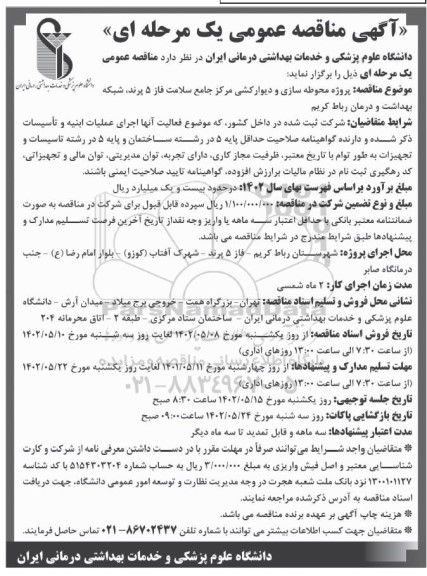 «آگهی مناقصه عمومی یک مرحله ای»
دانشگاه علوم پزشکی و خدمات بهداشتی درمانی ایران
دانشگاه علوم پزشکی و خدمات بهداشتی درمانی ایران در نظر دارد مناقصه عمومی
یک مرحله ای ذیل را برگزار نماید:
موضوع مناقصه: پروژه محوطه سازی و دیوارکشی مرکز جامع سلامت فاز ۵ پرند، شبکه
بهداشت و درمان رباط کریم
شرایط متقاضیان: شرکت ثبت شده در داخل کشور، که موضوع فعالیت آنها اجرای عملیات ابنیه و تأسیسات
ذکر شده و دارنده گواهینامه صلاحیت حداقل پایه ۵ در رشته ساختمان و پایه ۵ در رشته تاسیسات و
تجهیزات به طور توام با تاریخ معتبر، ظرفیت مجاز کاری، دارای تجربه، توان مدیریتی، توان مالی و تجهیزاتی،
کد رهگیری ثبت نام در نظام مالیات برارزش افزوده، گواهینامه تایید صلاحیت ایمنی باشند.
مبلغ برآورد براساس فهرست بهای سال ۱۴۰۲: درحدود بیست و یک میلیارد ریال
مبلغ و نوع تضمین شرکت در مناقصه: ۱/۱۰۰/۰۰۰/۰۰۰ ریال سپرده قابل قبول برای شرکت در مناقصه به صورت
ضمانتنامه معتبر بانکی با حداقل اعتبار سه ماهه یا واریز وجه نقداز تاریخ آخرین فرصت تسلیم مدارک و
پیشنهادها طبق شرایط مندرج در شرایط مناقصه می باشد.
محل اجرای پروژه: شهرستان رباط کریم - فاز ۵ پرند - شهرک آفتاب (کوزو) - بلوار امام رضا (ع) - جنب
درمانگاه صابر
مدت زمان اجرای کار: ۲ ماه شمسی
نشانی محل فروش و تسلیم اسناد مناقصه: تهران - بزرگراه همت - خروجی برج میلاد - میدان آرش - دانشگاه
علوم پزشکی و خدمات بهداشتی درمانی ایران - ساختمان ستاد مرکزی - طبقه ۲ - اتاق محرمانه ۲۰۴
تاریخ فروش اسناد مناقصه: از روز یکشنبه مورخ ۱۴۰۲/۰۵/۰۸ لغایت روز سه شنبه مورخ ۱۴۰۲/۰۵/۱۰
(از ساعت ۷:۳۰ الی ساعت ۱۳:۰۰ روزهای اداری)
مهلت تسلیم مدارک و پیشنهادها: از روز چهارشنبه مورخ ۱۴۰۱/۰۵/۱۱ لغایت روز یکشنبه مورخ ۱۴۰۲/۰۵/۲۲
(از ساعت ۷:۳۰ الی ساعت ۱۳:۰۰ روزهای اداری)
تاریخ جلسه توجیهی: روز یکشنبه مورخ ۱۴۰۲/۰۵/۱۵ ساعت ۸:۳۰ صبح
تاریخ بازگشایی پاکات: روز سه شنبه مورخ ۱۴۰۲/۰۵/۲۴ ساعت ۰۹:۰۰ صبح
مدت اعتبار پیشنهادها: سه ماهه و قابل تمدید تا سه ماه دیگر
* متقاضیان واجد شرایط می‌توانند صرفاً در مهلت مقرر با در دست داشتن معرفی نامه از شرکت و کارت
شناسایی معتبر و اصل فیش واریزی به مبلغ ۳/۰۰۰/۰۰۰ ریال به حساب شماره ۵۱۵۴۳۰۳۲۰۴ با کد شناسه
۱۳۰۰۱۰۱۱۲۷ نزد بانک ملت شعبه هجرت در وجه مدیریت نظارت و توسعه امور عمومی دانشگاه، جهت دریافت
اسناد مناقصه به آدرس ذکرشده مراجعه نمایند.
* هزینه چاپ آگهی بر عهده برنده مناقصه می باشد.
* متقاضیان جهت کسب اطلاعات بیشتر می توانند با شماره تلفن ۸۶۷۰۲۴۳۷-۰۲۱ تماس حاصل فرمایند.
دانشگاه علوم پزشکی و خدمات بهداشتی درمانی ایران